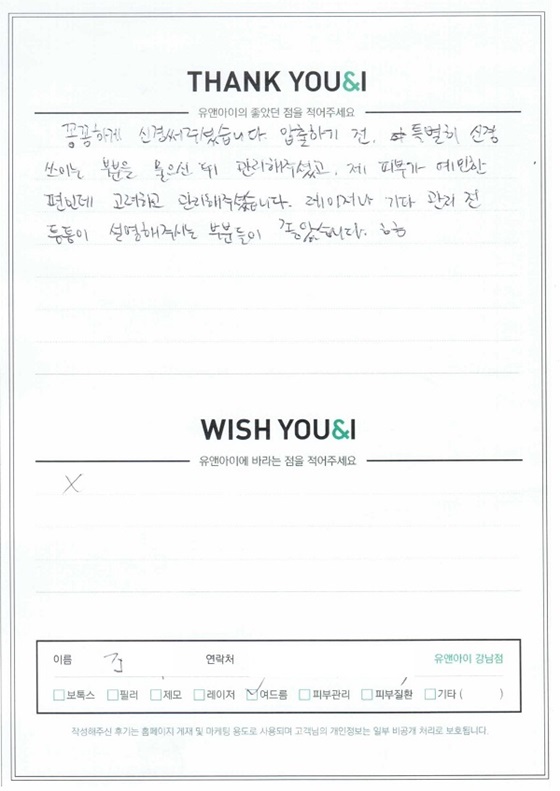 THANK YOU&I
유앤아이의 좋았던 점을 적어주세요
꼼꼼하게 신경써주셨습니다. 압출하기 전, 특별히 신경
쓰이는 부분을 물으신 뒤 관리해주셨고, 제 피부가 예민한
편인데 고려하고 관리해주셨습니다. 레이저나 기타 관리 전
설명해주시는 부분들이 좋았습니다. ㅎㅎ
WISH YOU&I
유앤아이에 바라는 점을 적어주세요
X
이름 연락처 유앤아이 강남점
보톡스 필러 제모 레이저 여드름 피부관리 피부질환 기타 ( )
작성해주신 후기는 홈페이지 게재 및 마케팅 용도로 사용되며 고객님의 개인정보는 일부 비공개 처리로 보호됩니다.